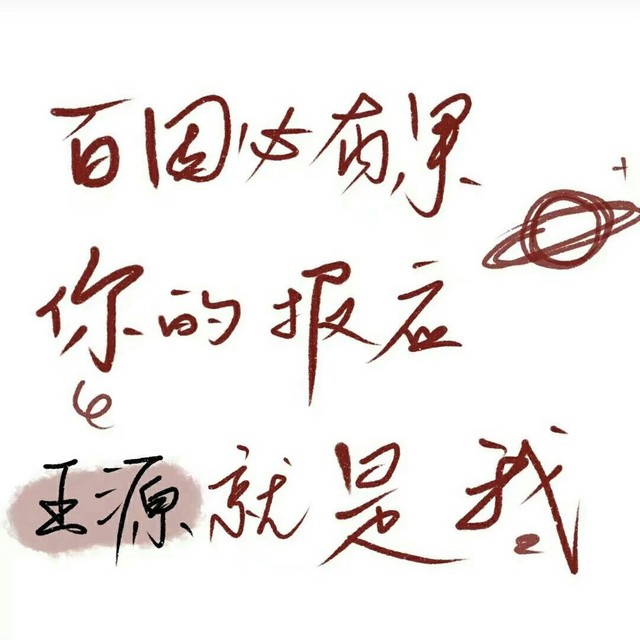 百因必有果
你的报应
王源就是我